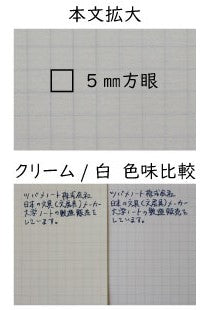 本文拡大
5㎜方眼
クリーム / 白 色味比較
ツバメノート株式会社
日本の文具(文房具)メーカー
大学ノートの製造販売を
しています。
ツバメノート株式会社
日本の文具(文房具)メーカー
大学ノートの製造販売を
しています。